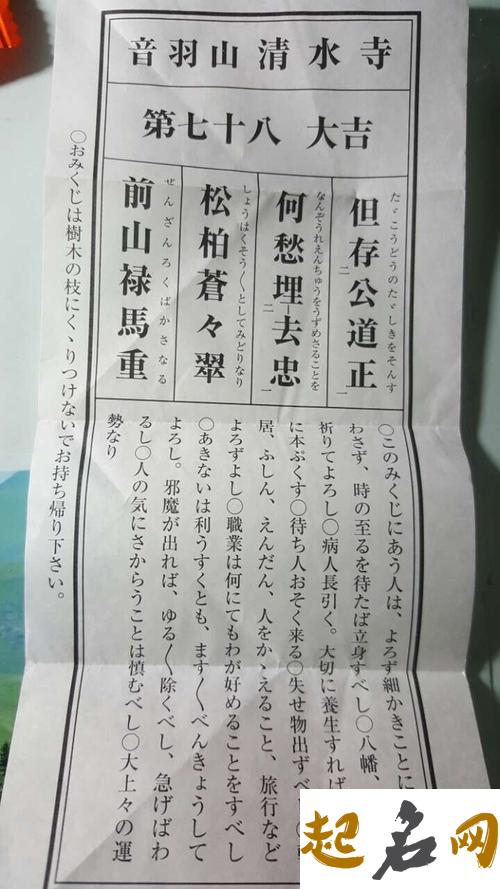 音羽山 清水寺
第七十八 大吉
たゞこうどうのたゞしきをそんす
但存二公道正一
なんぞうれえんちゅうをうずめさることを
何愁埋二去忠一
しょうはくそう〱としてみどりなり
松柏蒼々翠
ぜんざんろくばかさなる
前山禄馬重
〇このみくじにあう人は、よろず細かきことに
わさず、時の至るを待たば立身すべし〇八幡、
祈りてよろし〇病人長引く。大切に養生すれば
に本ぷくす〇待ち人おそく来る〇失せ物出ずべ
居、ふしん、えんだん、人をかゝえること、旅行など
よろずよし〇職業は何にてもわが好めることをすべし
〇あきないは利うすくとも、ます〱べんきょうして
よろし。邪魔が出れば、ゆる〱除くべし、急げばわ
るし〇人の気にさからうことは慎むべし〇大上々の運
勢なり
〇おみくじは樹木の枝にくゝりつけないでお持ち帰り下さい。
起名网